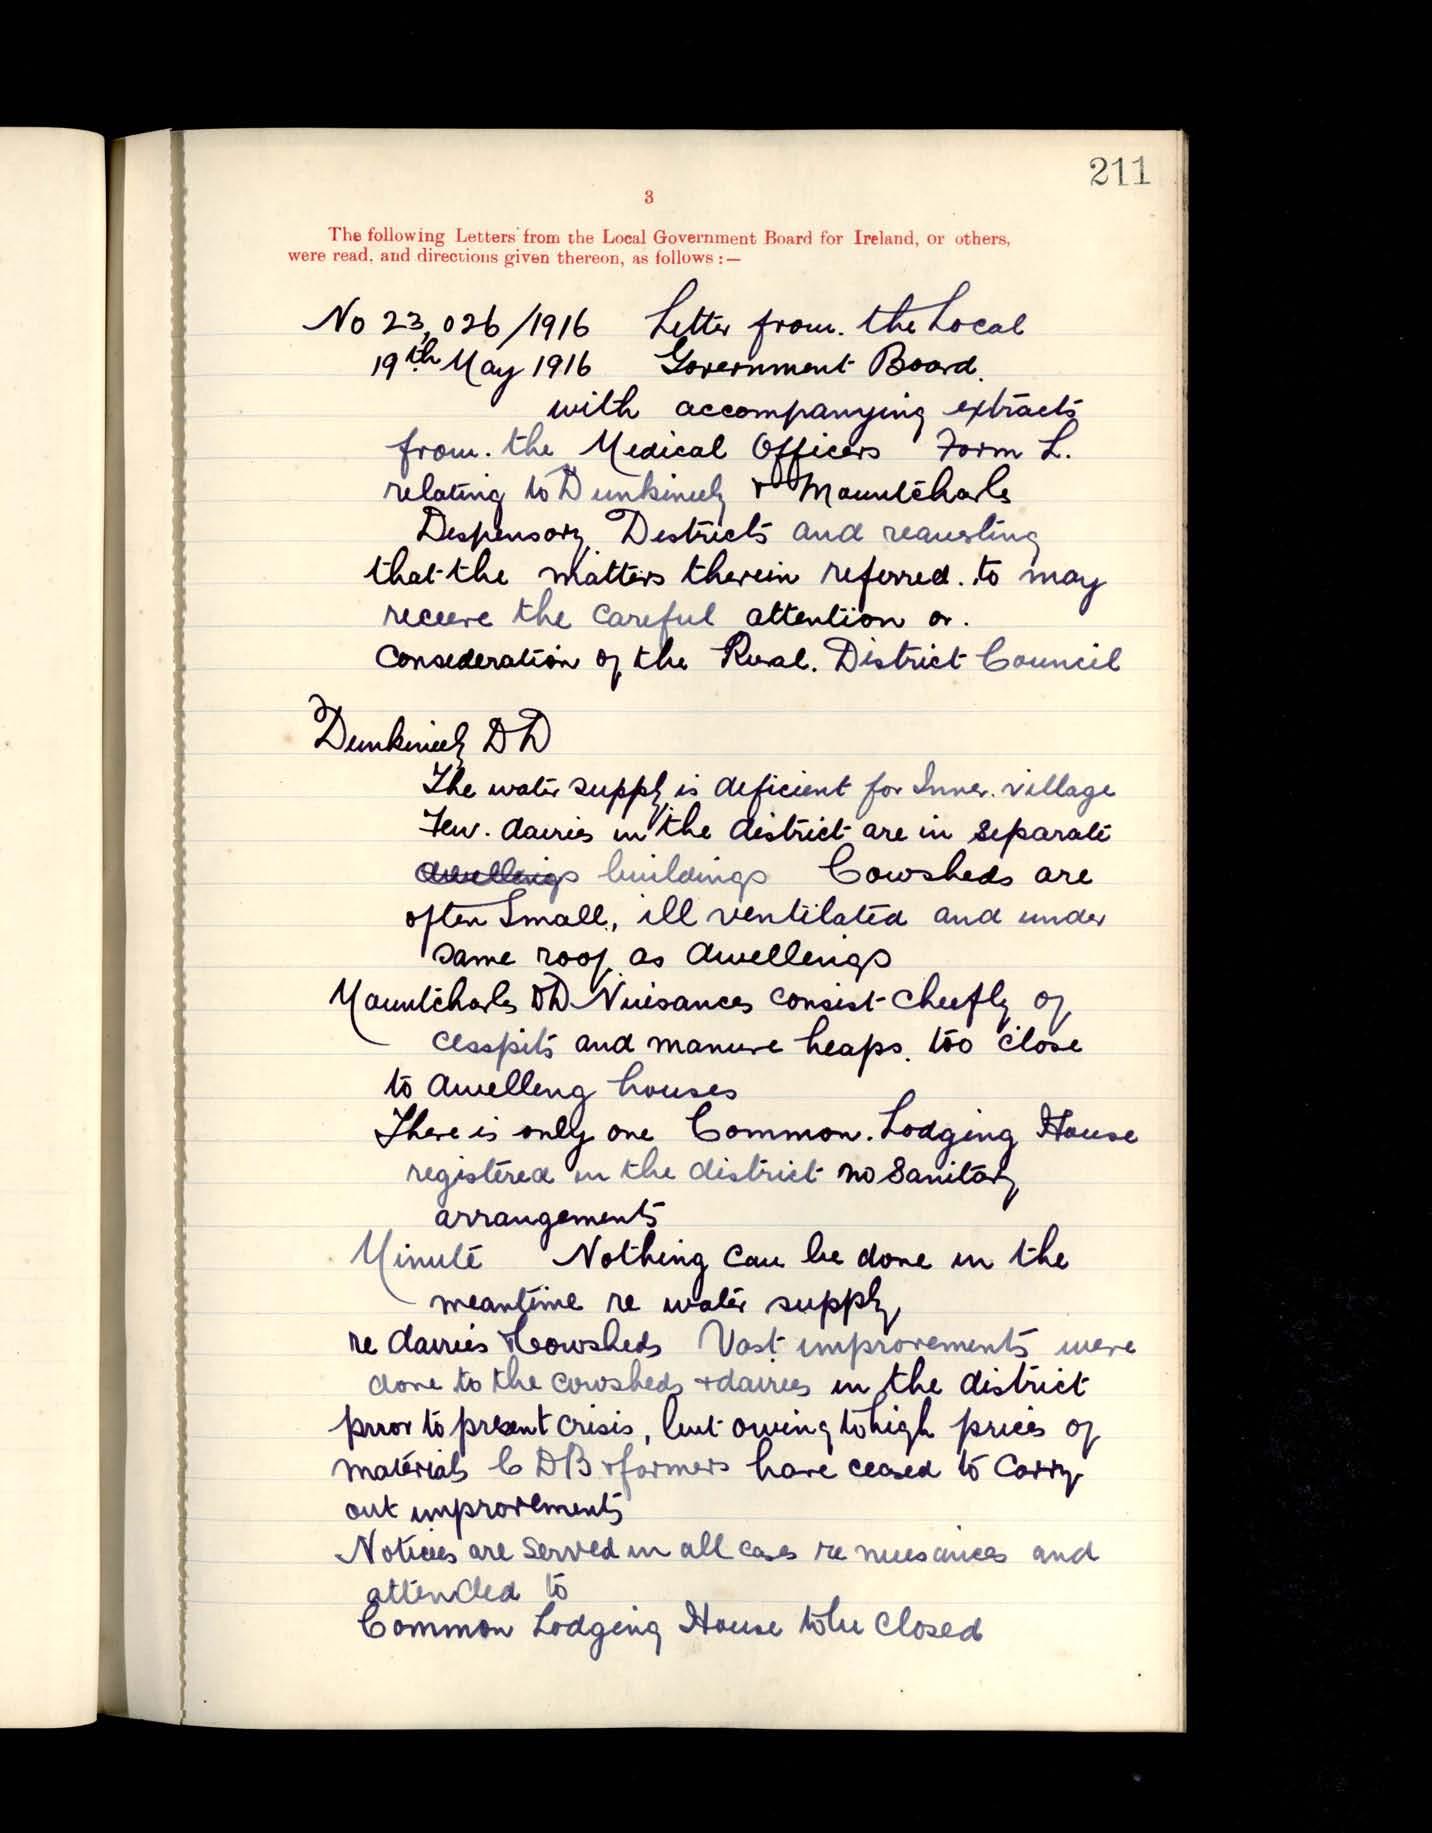 211
3
The following Letters from the Local Government Board for Ireland, or others,
were read, and directions given thereon, as follows :—
No 23,026/1916 Letter from. the Local
19th May 1916 Government Board.
with accompanying extracts
from. the Medical Officers Form L.
relating to Dunkineely & Mountcharles
Dispensary Districts and requesting
that the matters therein referred. to may
receive the careful attention or.
consideration of the Rural. District Council
Dunkineely DD
The water supply is deficient for Inver. village
Few. dairies in the district are in separate
dwellings buildings Cowsheds are
often small, ill ventilated and under
same roof as dwellings
Mountcharles DD Nuisances consist chiefly of
cesspits and manure heaps. too close
to dwelling houses
There is only one Common. Lodging House
registered in the district no sanitary
arrangements
Minute Nothing can be done in the
meantime re water supply
re dairies & Cowsheds Vast improvements were
done to the cowsheds + dairies in the district
prior to present crisis, but owing to high prices of
materials C D B + farmers have ceased to carry
out improvements
Notices are served in all cases re nuisances and
attended to
Common Lodging House to be closed